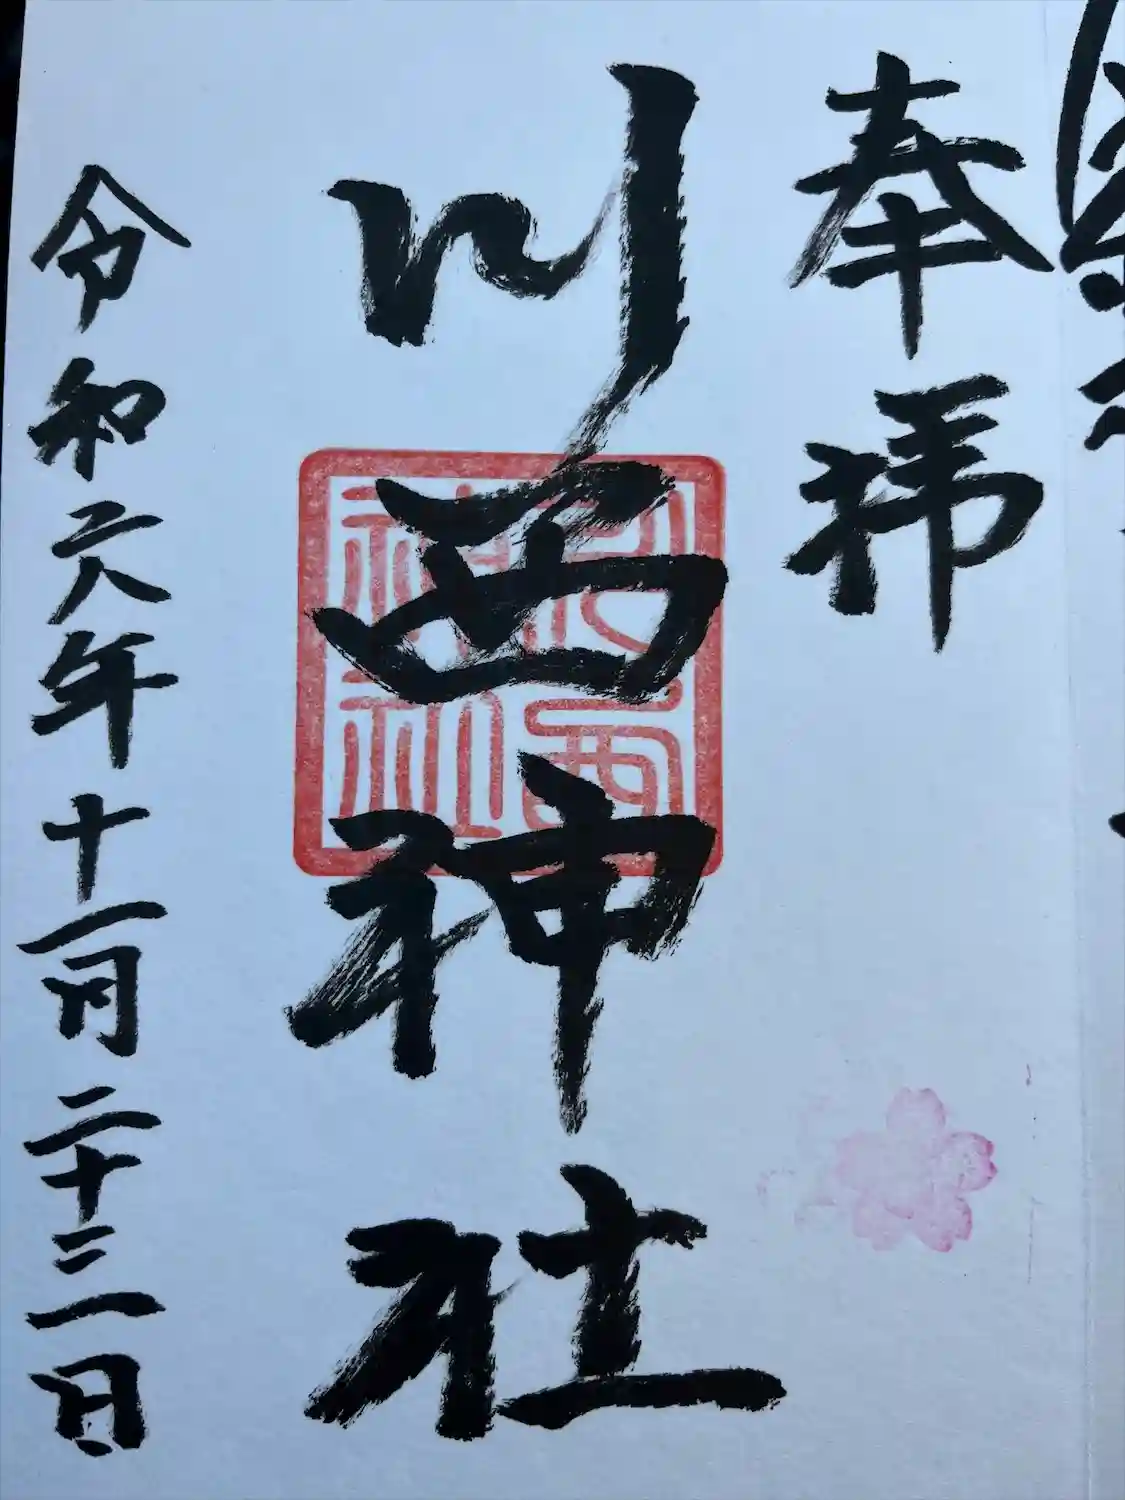 奉拝
川西神社
令和六年十一月二十三日